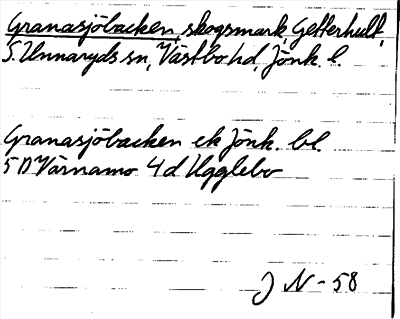 Granasjöbacken, skogsmark, Getterhult,
S. Unnaryds sn, Västbo hd, Jönk. l.
Granasjöbacken ek Jönk. bl.
5 D Värnamo 4 d Ugglebo
J N - 58